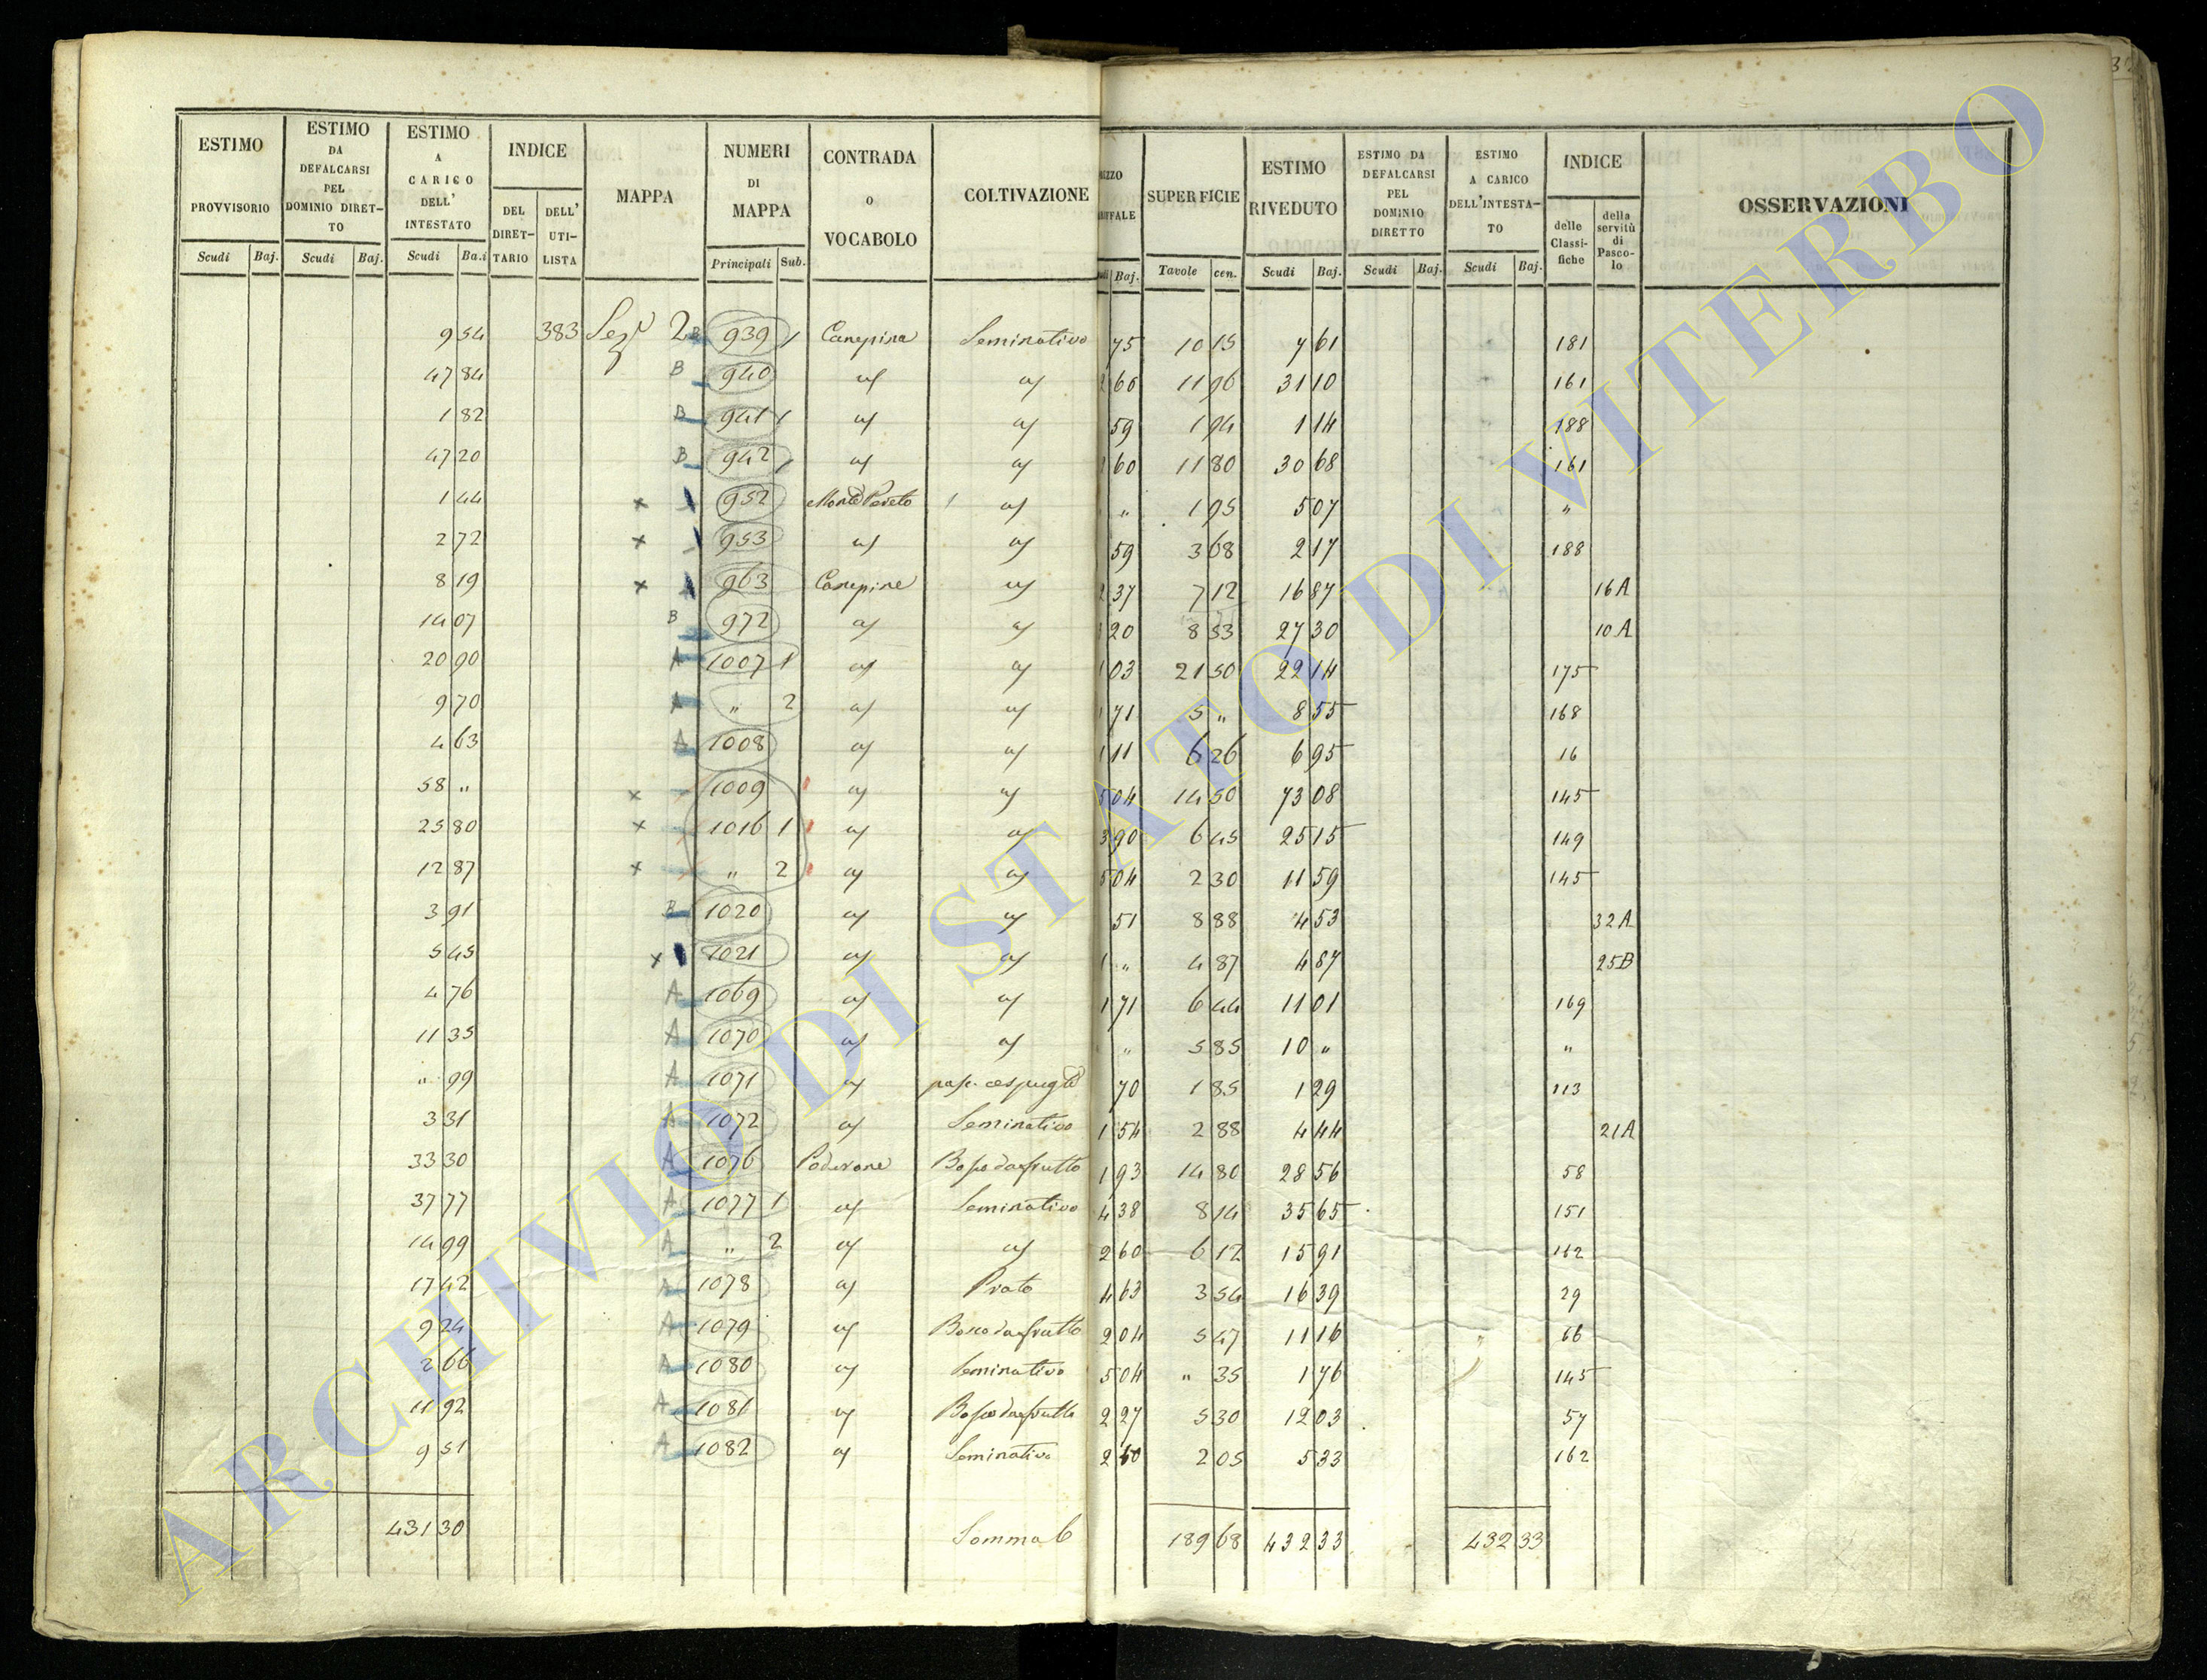 ESTIMO PROVVISORIO
ESTIMO DA DEFALCARSI PEL DOMINIO DIRET- TO
ESTIMO A CARICO DELL' INTESTATO
INDICE
DEL DIRET- TARIO
DELL' UTI- LISTA
MAPPA
NUMERI DI MAPPA
CONTRADA O VOCABOLO
COLTIVAZIONE
SUPERFICIE
ESTIMO RIVEDUTO
ESTIMO DA DEFALCARSI PEL DOMINIO DIRETTO
ESTIMO A CARICO DELL'INTESTA- TO
INDICE
delle Classi- fiche
della servitù di Pasco- lo
OSSERVAZIONI
Scudi Baj. Scudi Baj. Scudi Ba.i Principali Sub. Baj. Tavole cen. Scudi Baj. Scudi Baj. Scudi Baj.
9 54 383 Sez.e 2 B 939 1 Canepina Seminativo 75 10 15 7 61 181
47 84 B 940 " " 2 60 11 96 31 10 161
1 82 B 941 1 " " 59 1 94 1 14 188
47 20 B 942 1 " " 2 60 11 80 30 68 161
1 44 x 952 Monte Pereto " " 1 95 5 07 "
2 72 x 953 " " 59 3 68 2 17 188
8 19 x 963 Canepine " 2 37 7 12 16 87 16A
14 07 B 972 " " 3 20 8 53 27 30 10A
20 90 A 1007 1 " " 1 03 21 50 22 14 175
9 70 A " 2 " " 1 71 5 " 8 55 168
4 63 A 1008 " " 1 11 6 26 6 95 16
58 " x 1009 " " 5 04 14 50 73 08 145
25 80 x 1016 1 " " 3 90 6 45 25 15 149
12 87 x " 2 " " 5 04 2 30 11 59 145
3 91 B 1020 " " 51 8 88 4 53 32A
5 45 x 1021 " " 1 " 4 87 4 87 25B
4 76 A 1069 " " 1 71 6 44 11 01 169
11 35 A 1070 " " " 5 85 10 " "
" 99 A 1071 " pasc. cespugto 70 1 85 1 29 113
3 31 A 1072 " Seminativo 1 54 2 88 4 44 21A
33 30 A 1076 Poderone Bosco da frutto 1 93 14 80 28 56 58
37 77 A 1077 1 " Seminativo 4 38 8 14 35 65 151
14 99 A " 2 " " 2 60 6 12 15 91 162
17 42 A 1078 " Prato 4 63 3 54 16 39 29
9 24 A 1079 " Bosco da frutto 2 04 5 47 11 16 66
2 66 A 1080 " Seminativo 5 04 " 35 1 76 145
11 92 A 1081 " Bosco da frutto 2 27 5 30 12 03 57
9 51 A 1082 " Seminativo 2 60 2 05 5 33 162
431 30 Somma 189 68 432 33 432 33
ARCHIVIO DI STATO DI VITERBO